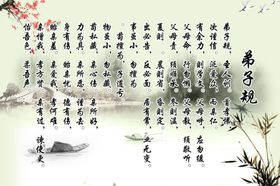 弟子规
弟子规 圣人训 首孝悌
次谨信 泛爱众 而亲仁
有余力 则学文 父母呼 应勿缓
父母命 行勿懒 父母教 须敬听
父母责 须顺承 冬则温
夏则凊 晨则省 昏则定
出必告 反必面 居有常 业无变
事虽小 勿擅为
苟擅为 子道亏
物虽小 勿私藏
苟私藏 亲心伤 亲所好
力为具 亲所恶 谨为去
身有伤 贻亲忧 德有伤
贻亲羞 亲爱我 孝何难
亲憎我 孝方贤 亲有过 谏使更
怡吾色 柔吾声